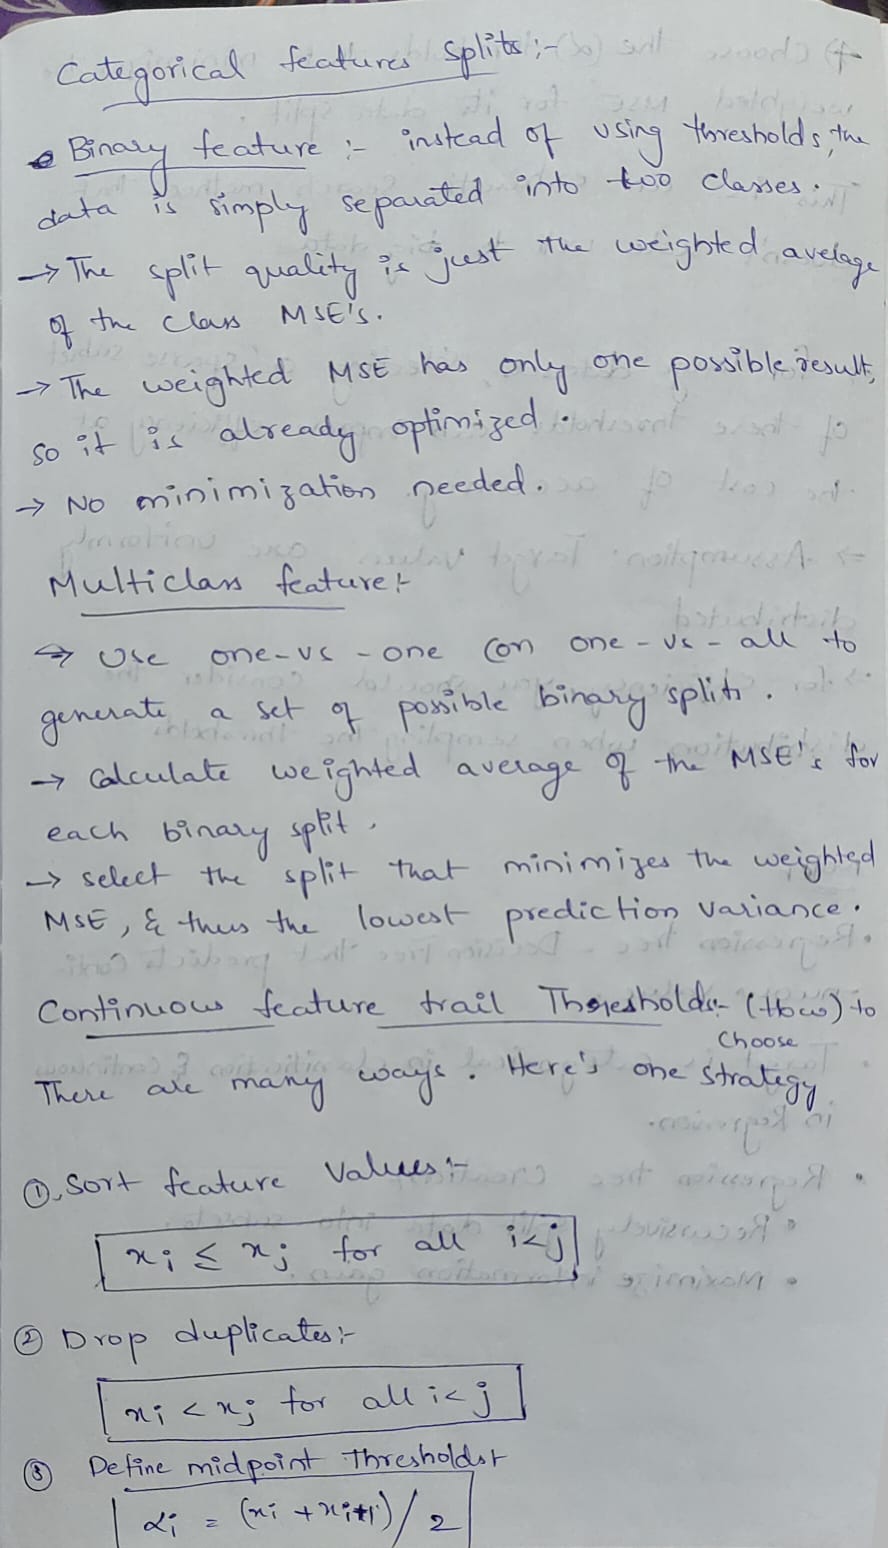 Categorical features splits :-
Binary feature :- instead of using thresholds, the
data is simply separated into too classes.
→ The split quality is just the weighted average
of the class MSE's.
→ The weighted MSE has only one possible result,
so it is already optimized.
→ No minimization needed.
Multiclass feature :-
→ Use one-vs-one (on one-vs-all to
generate a set of possible binary splits.
→ Calculate weighted average of the MSE's for
each binary split.
→ select the split that minimizes the weighted
MSE, & thus the lowest prediction variance.
Continuous feature trail Thresholds:- (How) to
Choose
There are many ways. Here's one strategy
①. Sort feature values :-
xi ≤ xj for all i<j
② Drop duplicates :-
xi < xj for all i<j
③ Define midpoint Thresholds :-
αi = (xi + xi+1)/2